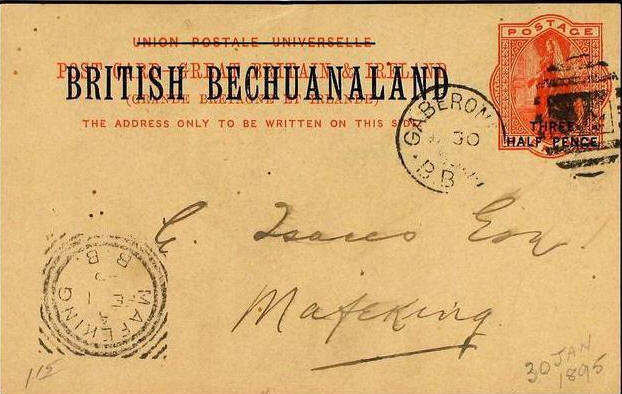 UNION POSTALE UNIVERSELLE
POST CARD GREAT BRITAIN & IRELAND
BRITISH BECHUANALAND
(GRANDE BRETAGNE ET IRLANDE)
THE ADDRESS ONLY TO BE WRITTEN ON THIS SIDE
POSTAGE
THREE
HALF PENCE
GABERON
30
B.B
G. Isaacs Esq
Mafeking
MAFEKING
B.B.
30 JAN
1895